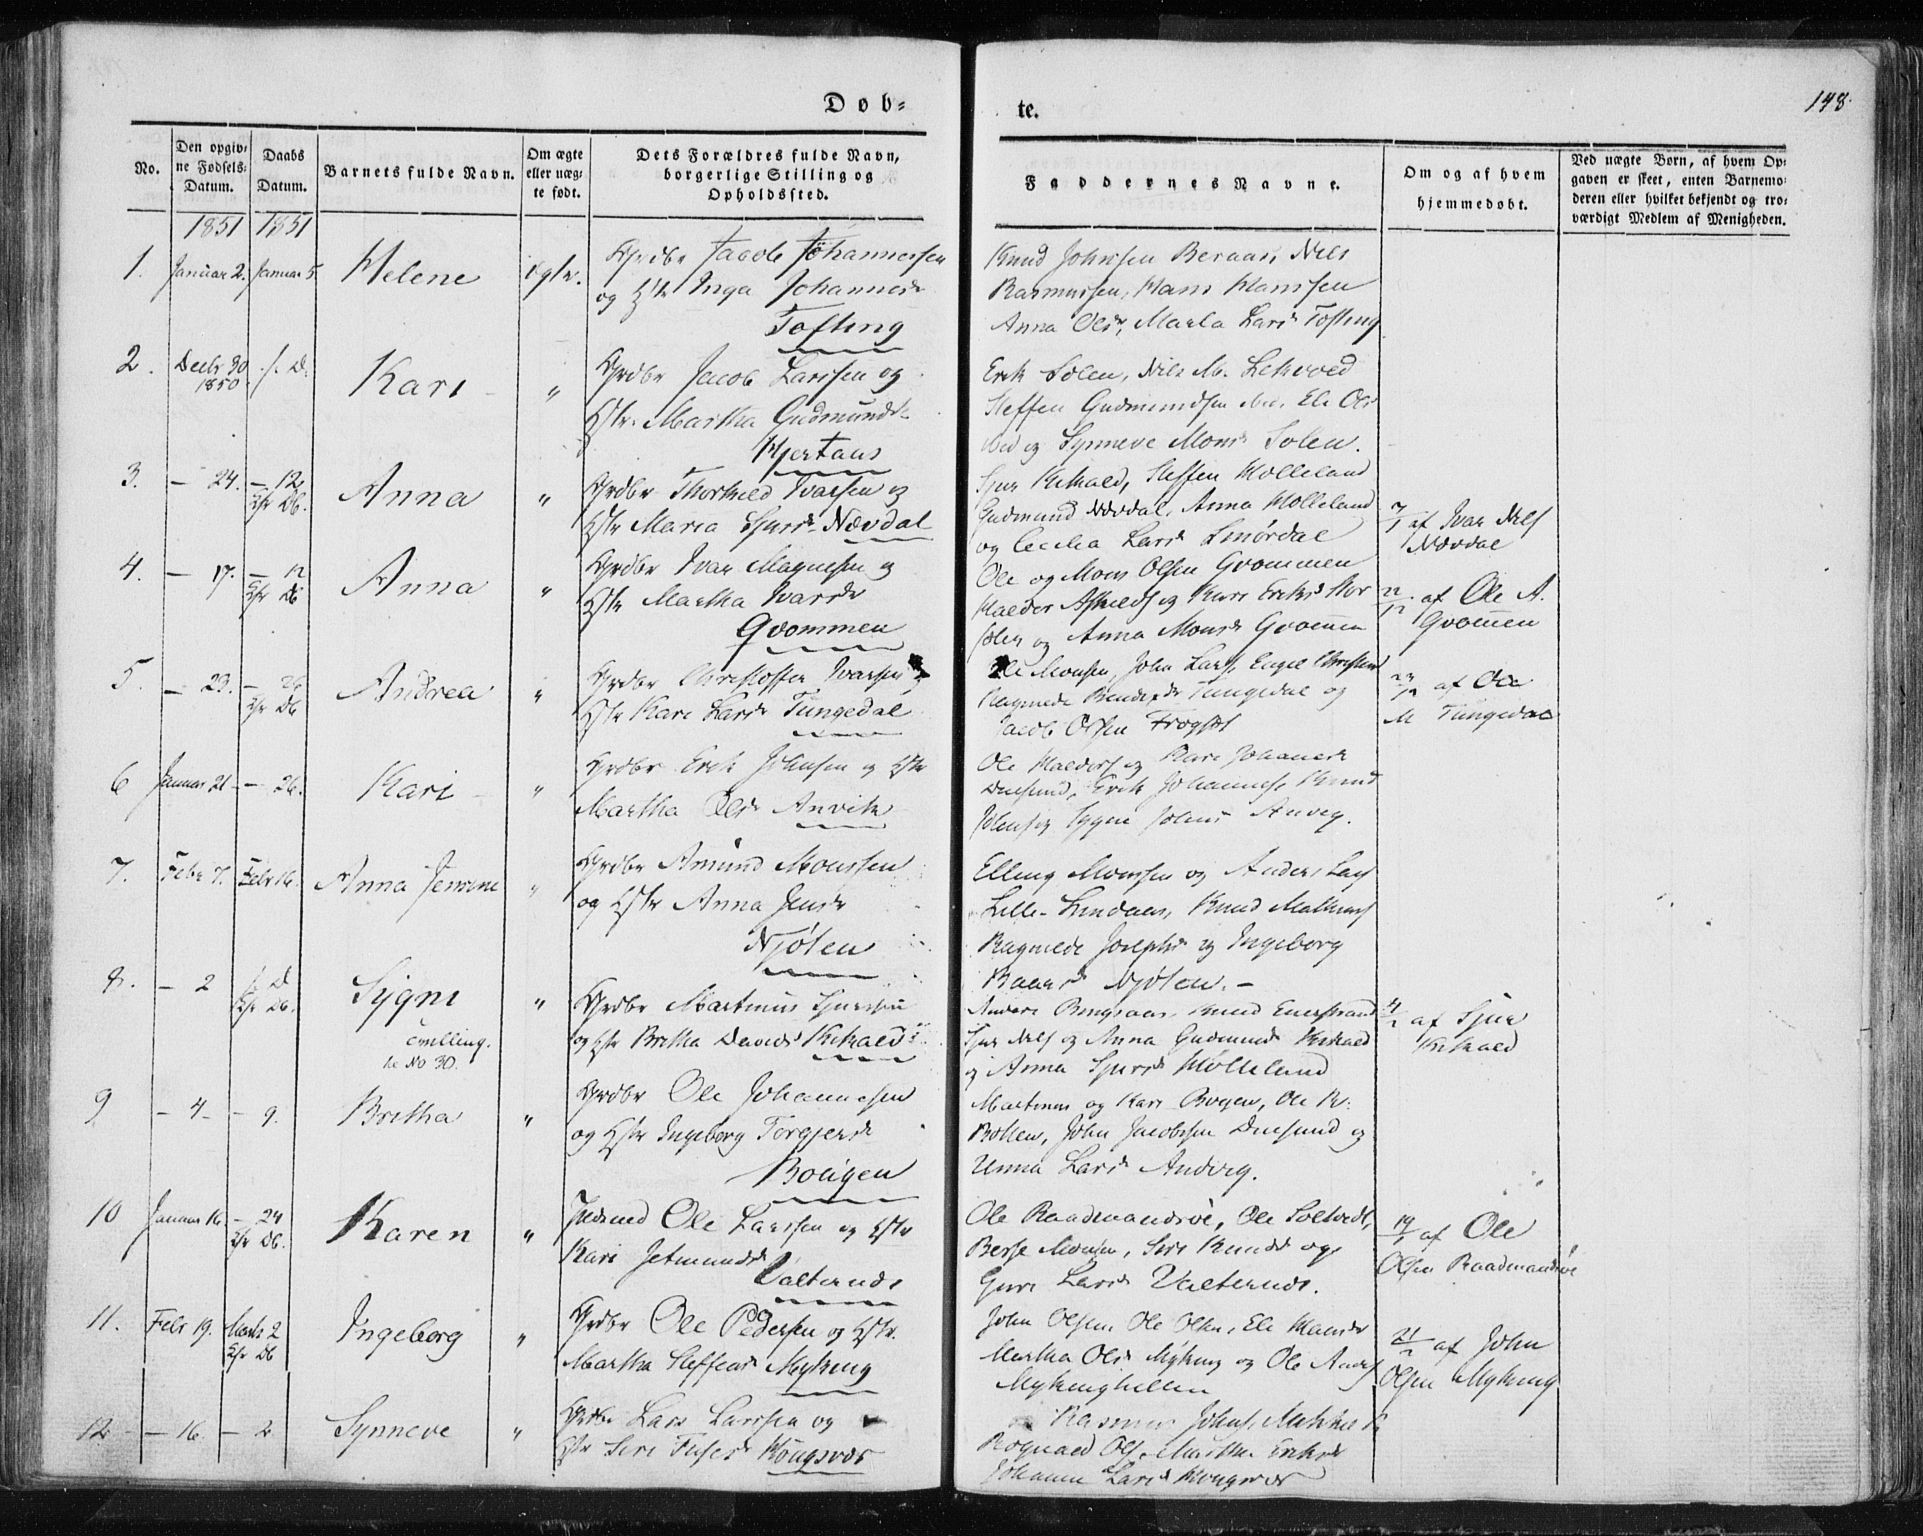 Døb-
te.
148.
No.
Den opgiv-
ne Fødsels-
Datum.
Daabs
Datum.
Barnets fulde Navn.
Om ægte
eller uæg-
te født.
Dets Forældres fulde Navn,
borgerlige Stilling og
Opholdssted.
Faddernes Navne.
Om og af hvem
hjemmedøbt.
Ved uægte Børn, af hvem Op-
gaven er skeet, enten Barnemo-
deren eller hvilket bekjendt og tro-
værdigt Medlem af Menigheden.
1851 1851
1. Januar 2. Januar 5 Helene Ægte. Grdbr Jacob Johannessen
og Hstr Inga Johannesd
Tofting
Knud Johnsen Beraas, Nils
Rasmussen, Hans Hanssen
Anna Olsd, Marta Larsd Tofting
2. Decbr 30 s. D.
1850
Kari " Grdbr Jacob Larssen og
Hstr. Martha Gudmundsd
Hjertaas
Erik Solen, Nils M. Lekved
Steffen Gudmundsen Ele Ols
og Synneve Monsd Solen.
3. — 24. — 12 Anna " Grdbr Thorkild Ivarsen og
Hstr Maria Sjursd Nævdal
Sjur Kikald, Steffen Molleland
Gudmund Nævdal, Anna Molleland
og Cecilia Larsd Smørdal
7/1 af Ivar Nils
Nævdal
4. — 17. — 12 Anna " Grdbr Ivar Magnesen og
Hstr Martha Ivarsd
Qvommen
Ole og Mons Olsen Qvommen
Halder og Kari Eriksd
og Anna Monsd Qvommen
22/12 af Ole A.
Qvommen
5. — 23. — 26 Andrea " Grdbr Christoffer Ivarsen og
Hstr Kari Larsd Tungedal
Ole Monsen, John Lars, Engel Christens
Ragnilde Tungedal og
Jacob Olsen
af Ole
M Tungedal
6 Januar 21 — 26. Kari " Grdbr Erik Johnsen og Hstr
Martha Olsd Anvik
Ole Halders og Kari Johannesd
Duesund, Erik Johannes, Knud
Johns og Sygni Johns Anvig.
7. Febr 7. Febr 16. Anna Jensine " Grdbr Amund Monssen
og Hstr Anna Jensd
Njøten
Elling Monssen og Anders Lars
Lille-Lindaas, Knud Mathias
Ragnilde Josephsd og Ingeborg
Baarsd Njøten.—
8. — 2 s. D Sygni " Grdbr Martinus Sjurssen
og Hstr Britha Davids Kikald
Tvilling.
se No 30.
Anders Knud Enestrand
Sjur Nils og Anna Gudmunds Kikald
og Anna Sjursd Molleland
4/2 af Sjur
Kikald
9 — 4 — 9. Britha " Grdbr Ole Johannesen
og Hstr Ingeborg Torgersd
Bougen
Martinus og Kari Bogen, Ole K.
Botten, John Jacobsen Duesund og
Unna Larsd Andvig.
10 Januar 16 — 24 Karen " Indsmd Ole Larssen og Hstr
Kari Jetmundsd
Valternes
Ole Raadmandsøe, Ole Soltvedt,
Berse Monsen, Siri Knudsd og
Guri Larsd Valternes.
19/1 af Ole
Olsen Raadmandsøe
11. Febr 19. Marts 2 Ingeborg " Grdbr Ole Pedersen og Hstr.
Martha Steffensd Myking
John Olsen, Ole Olsen, Eli Hansd
Martha Olsd Myking og Ole Anders
Mykinghellen
21/2 af John
Olsen Myking
12 — 16. — 2 Synneve " Grdbr Lars Larssen og
Hstr Siri Kongsvos
Rasmus Johns,
Rognald Ols, Martha Eriksd
Johanna Larsd Kongsvos